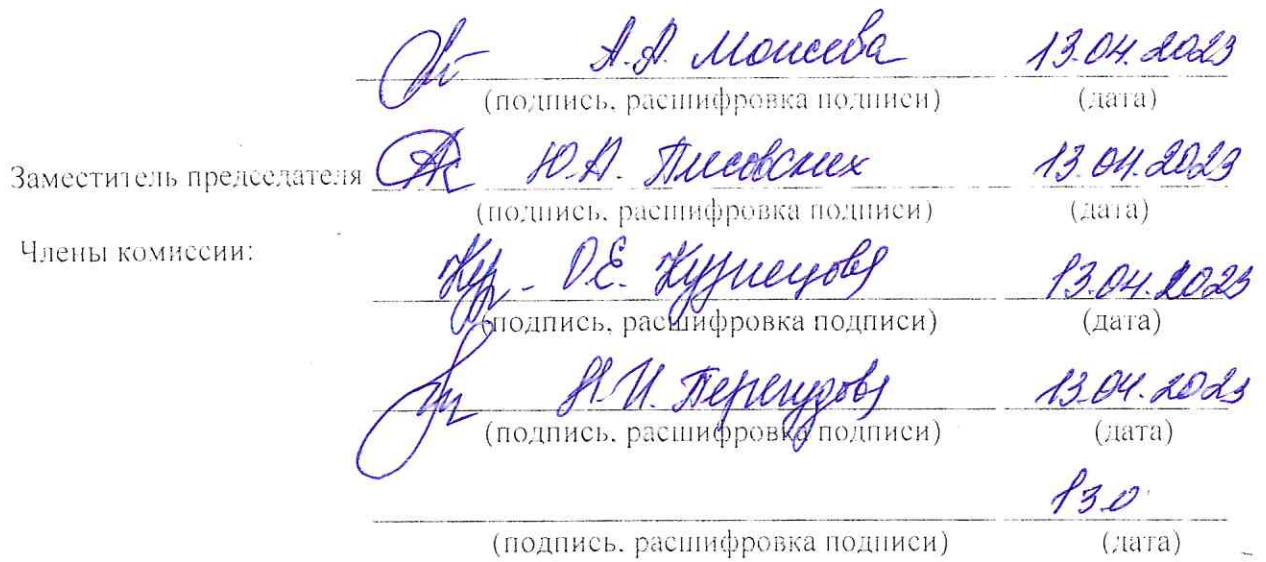 А.А. Моисеева 13.04.2023
(подпись, расшифровка подписи) (дата)
Заместитель председателя Ю.А. 13.04.2023
(подпись, расшифровка подписи) (дата)
Члены комиссии:
О.Е. Кузнецова 13.04.2023
(подпись, расшифровка подписи) (дата)
Н.И. Перегудова 13.04.2023
(подпись, расшифровка подписи) (дата)
13.0
(подпись, расшифровка подписи) (дата)